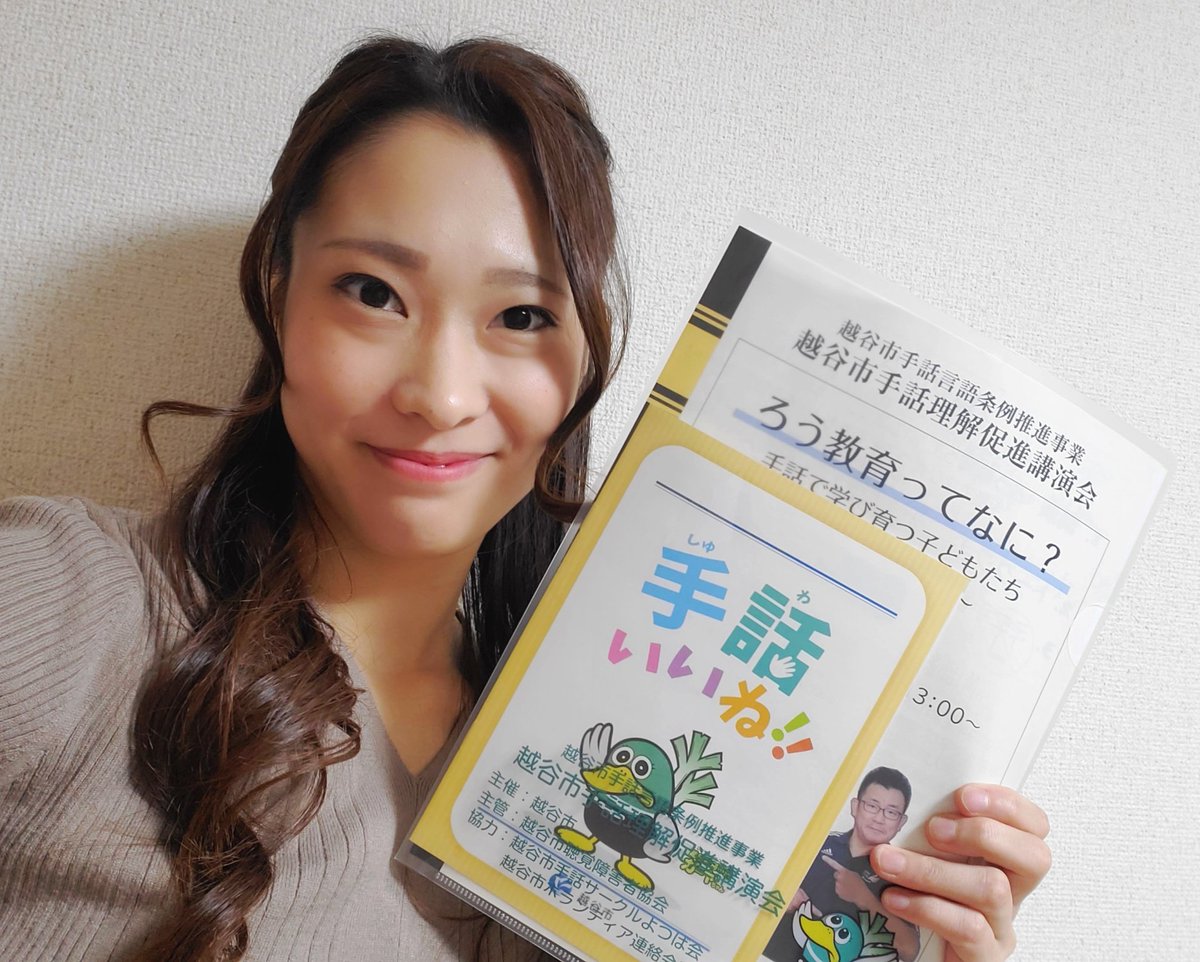 越谷市手話言語条例推進事業
越谷市手話理解促進講演会
ろう教育ってなに？
手話で学び育つ子どもたち
～
3:00～
しゅ わ
手話
いいね!!
越谷市手話 条例推進事業
越谷市手話理解促進講演会
主催：越谷市
主管：越谷市聴覚障害者協会
協力：越谷市手話サークルよつば会
越谷市 ランティア連絡会
越谷市